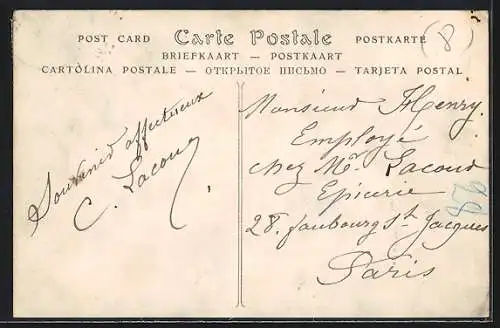 POST CARD Carte Postale POSTKARTE
BRIEFKAART — POSTKAART
CARTOLINA POSTALE — ОТКРЫТОЕ ПИСЬМО — TARJETA POSTAL
(8)
Souvenir affectueux
C. Lacour
Monsieur Henry.
Employé
chez Mr. Lacour
Epicerie
28. faubourg St. Jacques
Paris